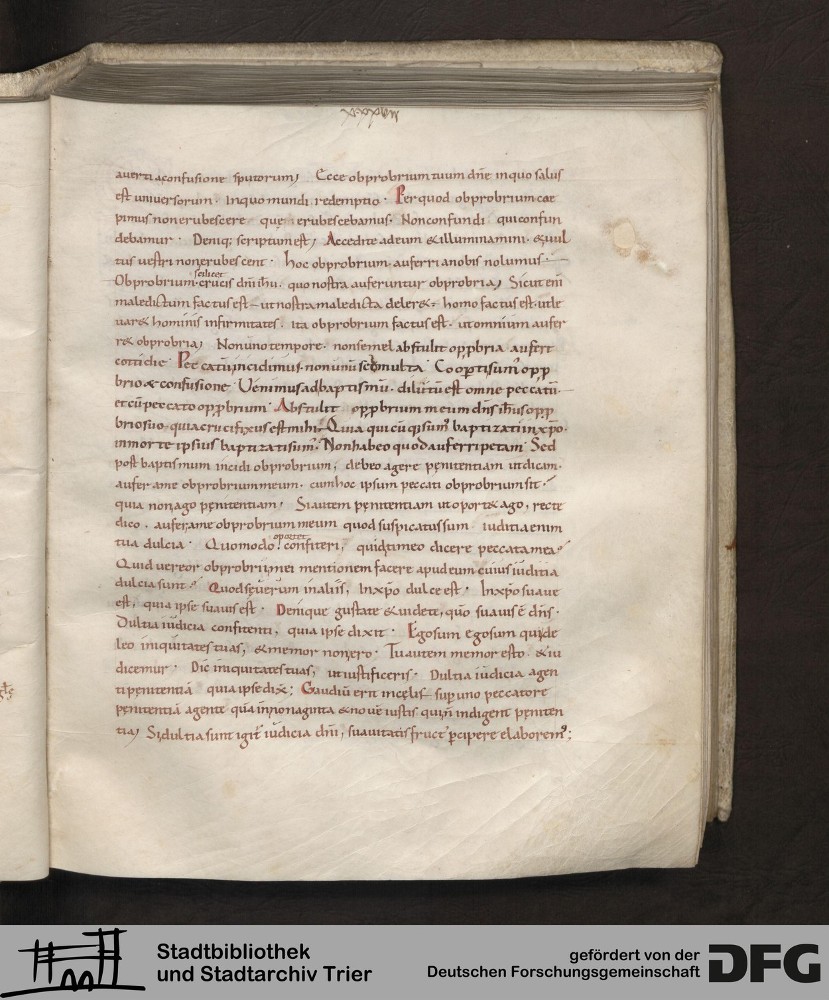 averti a confusione sputorum; Ecce obprobrium tuum dñe in quo salus
est universorum. In quo mundi redemptio. Per quod obprobrium cae
pimus non erubescere que erubescebamus. Non confundi qui confun
debamur. Deniq; scriptum est; Accedite ad eum & illuminamini. & vul
tus vestri non erubescent. hoc obprobrium auferri a nobis nolumus.
Obprobrium. scilicet crucis dñi ihu. quo nostra auferuntur obprobria; Sicut eni
maledictum factus est ut nostra maledicta deler&. homo factus est. ut le
var& hominis infirmitates. ita obprobrium factus est. ut omnium aufer
r& obprobria; Non uno tempore. non semel abstulit opp̱bria aufert
cottidie. Peccatum incidimus. non unu sed multa. Cooptisum' opp̱
brio & confusione. Venimus ad baptismu. dilutu est omne peccatu.
et cu peccato opp̱brium. Abstulit opp̱brium meum dñs ihus opp̱
brio suo, quia crucifixus est mihi. Quia quicuq; sum' baptizati in xpo.
in morte ipsius baptizati sum'. Non habeo quod auferri petam. Sed
post baptismum incidi obprobrium; debeo agere penitentiam ut dicam.
aufer a me obprobrium meum. cum hoc ipsum peccati obprobrium sit.
quia non ago penitentiam; Si autem penitentiam ut oport& ago, recte
dico. aufer a me obprobrium meum quod suspicatus sum. iuditia enim
tua dulcia. Quomodo oportet confiteri, quid timeo dicere peccata mea
Quid vereor obprobrii mei mentionem facere apud eum cuius iuditia
dulcia sunt. Quod severum in aliis, In xpo dulce est. In xpo suave
est, quia ipse suavis est. Denique gustate & videte, quo suavis e dñs.
Dultia iudicia confitenti, quia ipse dixit. Ego sum ego sum qui de
leo iniquitates tuas, & memor non ero. Tu autem memor esto. & iu
dicemur. Dic iniquitates tuas, ut iustificeris. Dultia iudicia agen
ti penitentia quia ipse dix; Gaudiu erit in celis sup uno peccatore
penitentia agente qua in nonaginta & nove iustis qui n indigent peniten
tia; Si dultia sunt igit iudicia dni, suavitatis fruct' p̱cipere elaborem';
Stadtbibliothek
und Stadtarchiv Trier
gefördert von der
Deutschen Forschungsgemeinschaft
DFG